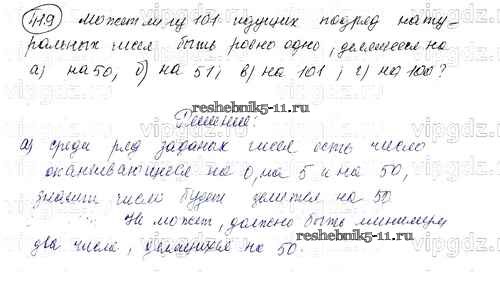 419 Может ли из 101 идущих подряд нату-
ральных чисел быть ровно одно, делящееся на
а) на 50; б) на 51; в) на 101; г) на 100?
reshebnik5-11.ru
Решение:
а) среди ряд заданых чисел есть число
оканчивающееся на 0, на 5 и на 50,
значит число будет делится на 50
Не может, должно быть минимум
reshebnik5-11.ru
два числа, делящихся на 50.